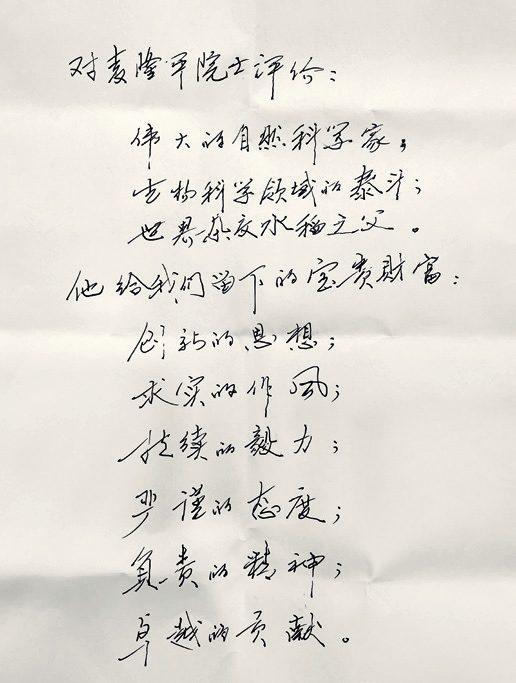 对袁隆平院士评价：
伟大的自然科学家；
生物科学领域的泰斗；
世界杂交水稻之父。
他给我们留下的宝贵财富：
创新的思想；
求实的作风；
持续的毅力；
严谨的态度；
负责的精神；
卓越的贡献。